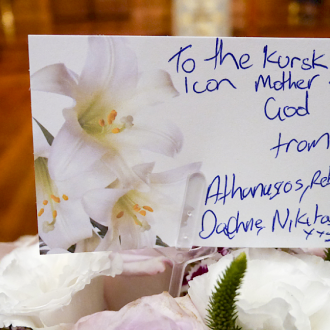 To the Kursk
Icon Mother
God
from
Athanasios, Reb
Daphne Nikita
xxx